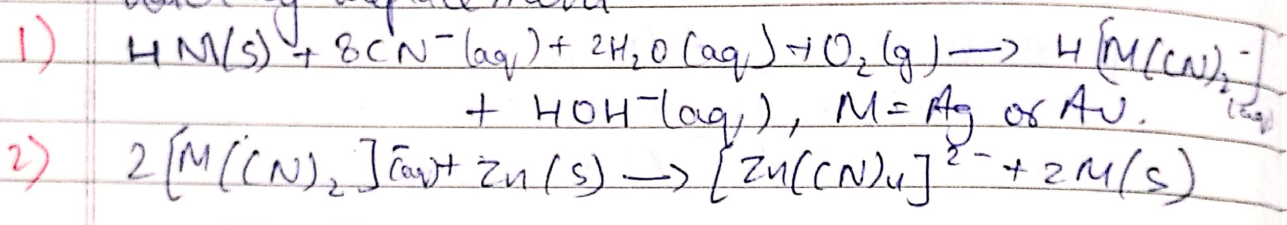 1) 4M(s) + 8CN⁻(aq) + 2H₂O(aq) + O₂(g) → 4[M(CN)₂⁻](aq)
+ 4OH⁻(aq), M = Ag or Au.
2) 2[M(CN)₂]⁻(aq) + Zn(s) → [Zn(CN)₄]²⁻ + 2M(s)